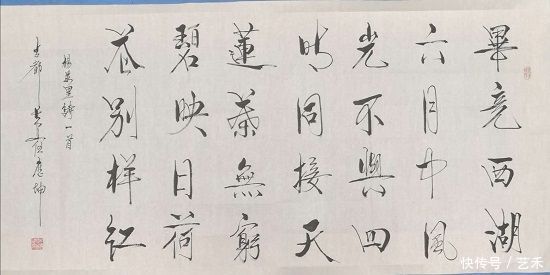 畢竟西湖
六月中風
光不與四
時同接天
蓮葉無窮
碧映日荷
花別樣紅
楊萬里詩一首
快传号/艺禾